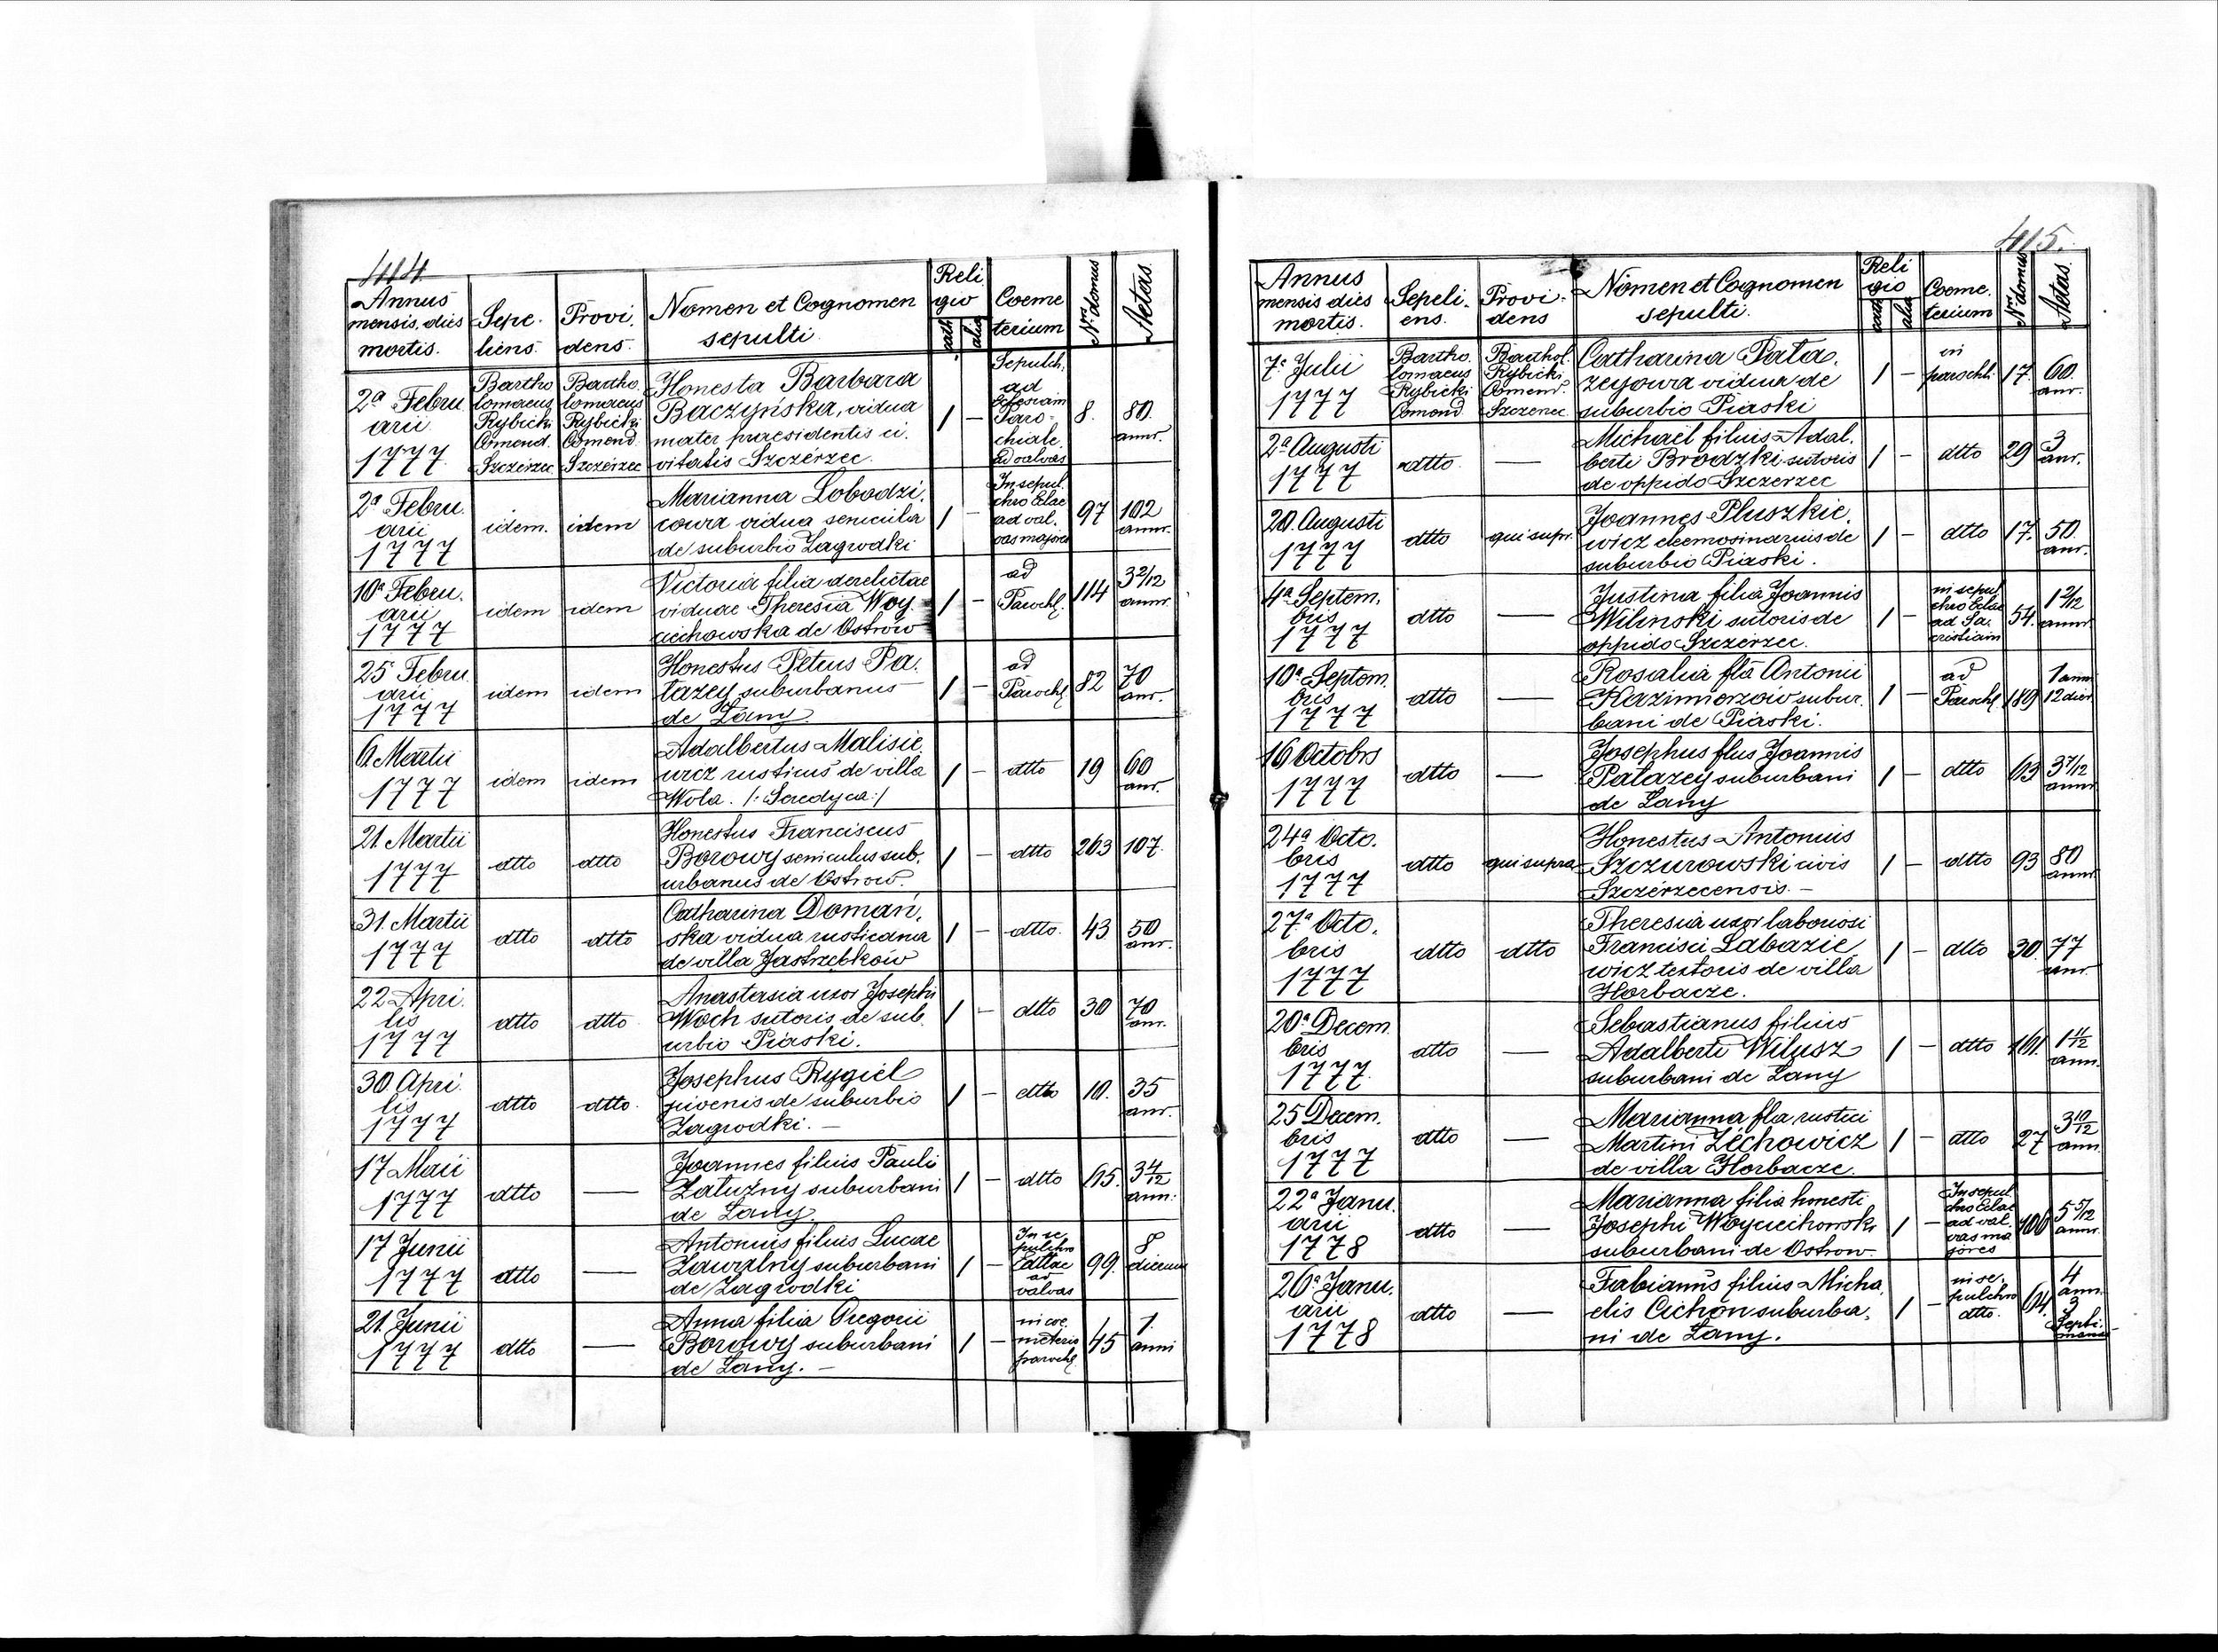 414.
Annus
mensis, dies
mortis.
Sepe-
liens.
Provi-
dens.
Nomen et Cognomen
sepulti
Reli
gio
cath
alia
Coeme
terium
Nrus domus
Aetas.
2a Febru
arii
1777
Bartho
lomaeus
Rybicki
Comend.
Szczerzec
Bartho.
lomaeus
Rybicki
Comend.
Szczerzec
Honesta Barbara
Baczyńska, vidua
mater praesidentis ci.
vitatis Szczerzec.
1
-
Sepulch.
ad
Eclesiam
Paro-
chiale.
ad valvas
8.
80.
annr.
2a Febru.
arii
1777
idem.
idem
Marianna Lobodzi.
cowa vidua senicula
de suburbio Zagrodki
1
-
In sepul.
chro Eclae
ad val.
vas majores
97
102
annr.
10a Febru.
arii
1777
idem
idem
Victoria filia derelictae
viduae Theresia Woy.
ciechowska de Ostrów
1
-
ad
Parochl.
114
3 2/12
annr.
25 Febru
arii
1777
idem
idem
Honestus Petrus Pa.
tazey suburbanus
de Łany
1
-
ad
Parochl
82
70
anr.
6. Martii
1777
idem
idem
Adalbertus Malisie.
wicz rusticus de villa
Wola. /: Seredyca :/
1
-
dtto
19
60
anr.
21. Martii
1777
dtto
dtto
Honestus Franciscus
Borowy seniculus sub.
urbanus de Ostrow.
1
-
dtto
263
107.
31. Martii
1777
dtto
dtto
Catharina Domań.
ska vidua rusticana
de villa Jastrzębków
1
-
dtto.
43
50
anr.
22 Apri.
lis
1777
dtto
dtto
Anastasia uxor Josephi
Woch sutoris de sub.
urbio Piaski.
1
-
dtto
30
70
anr.
30. Apri.
lis
1777
dtto
dtto.
Josephus Rygiel
juvenis de suburbio
Zagrodki. -
1
-
dtto
10.
35
anr.
17 Maii
1777
dtto
—
Joannes filius Pauli
Załużny suburbani
de Łany.
1
-
dtto
65.
3 4/12
ann.
17 Junii
1777
dtto
—
Antonius filius Lucae
Zawalny suburbani
de Zagrodki
1
-
In se
pulchro
ad
valvas
99.
8
dierum
21. Junii
1777
dtto
—
Anna filia Gregorii
Borowy suburbani
de Łany. -
1
-
in coe.
meterio
parochl
45
1.
anni
415.
Annus
mensis dies
mortis.
Sepeli-
ens.
Provi-
dens
Nomen et Cognomen
sepulti.
Reli
gio
cath
alia
Coeme.
terium
Nrus domus
Aetas.
7a Julii
1777
Bartho.
lomaeus
Rybicki
Comend
Barthol.
Rybicki
Comend.
Szczerzec
Catharina Pata.
zeyowa vidua de
suburbio Piaski
1
-
in
parochl.
17.
60.
anr.
2a Augusti
1777
dtto.
—
Michael filius Adal.
berti Brodzki sutoris
de oppido Szczerzec
1
-
dtto
29
3
anr.
20. Augusti
1777
dtto
qui supr.
Joannes Pluszkie.
wicz elemosinarius de
suburbio Piaski.
1
-
dtto
17.
50.
anr.
4a Septem.
bris
1777
dtto
—
Justina filia Joannis
Wilinski sutoris de
oppido Szczerzec.
1
-
in sepul
chro Eclae
ad Sa.
cristiam
54.
1 2/12
annr
10a Septem.
bris
1777
dtto
—
Rosalia fla Antonii
Kazimierzów subur.
bani de Piaski.
1
-
ad
Parochl.
189
1 ann
12 dier
16 Octobrs
1777
dtto
—
Josephus flus Joannis
Patazey suburbani
de Łany
1
-
dtto
63
3 7/12
annr
24a Octo.
bris
1777
dtto
qui supra
Honestus Antonius
Szczurowski civis
Szczerzecensis. -
1
-
dtto
93
80
annr
27a Octo.
bris
1777
dtto
dtto
Theresia uxor laboriosi
Francisci Labazie
wicz textoris de villa
Horbacze.
1
-
dtto
30.
77
anr.
20a Decem.
bris
1777
dtto
—
Sebastianus filius
Adalberti Wilusz
suburbani de Łany
1
-
dtto
161.
ann.
25 Decem.
bris
1777
dtto
—
Marianna fla rustici
Martini Lechowicz
de villa Horbacze.
1
-
dtto
27
3 10/12
ann.
22a Janu.
arii
1778
dtto
—
Marianna filia honesti
Josephi Woyciechowski
suburbani de Ostrow.
1
-
In sepul
chro Eclae
ad val.
vas ma
jores
106
5 5/12
annr.
26a Janu.
arii
1778
dtto
—
Fabianus filius Micha.
elis Cichon suburba.
ni de Łany.
1
-
in se.
pulchro
dtto.
64.
4
ann.
3
Septi.
mana